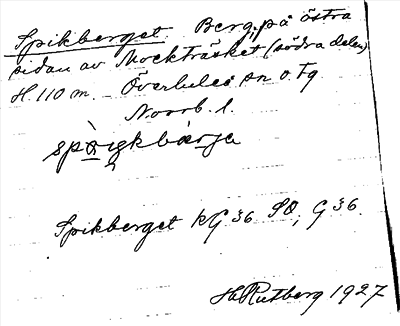 Spikberget. Berg, på östra
sidan av Mockträsket (södra delen)
H. 110 m. Överlule sn o. tg
Norrb. l.
Spikberget kG 36 SO, G 36.
H Rutberg 1927